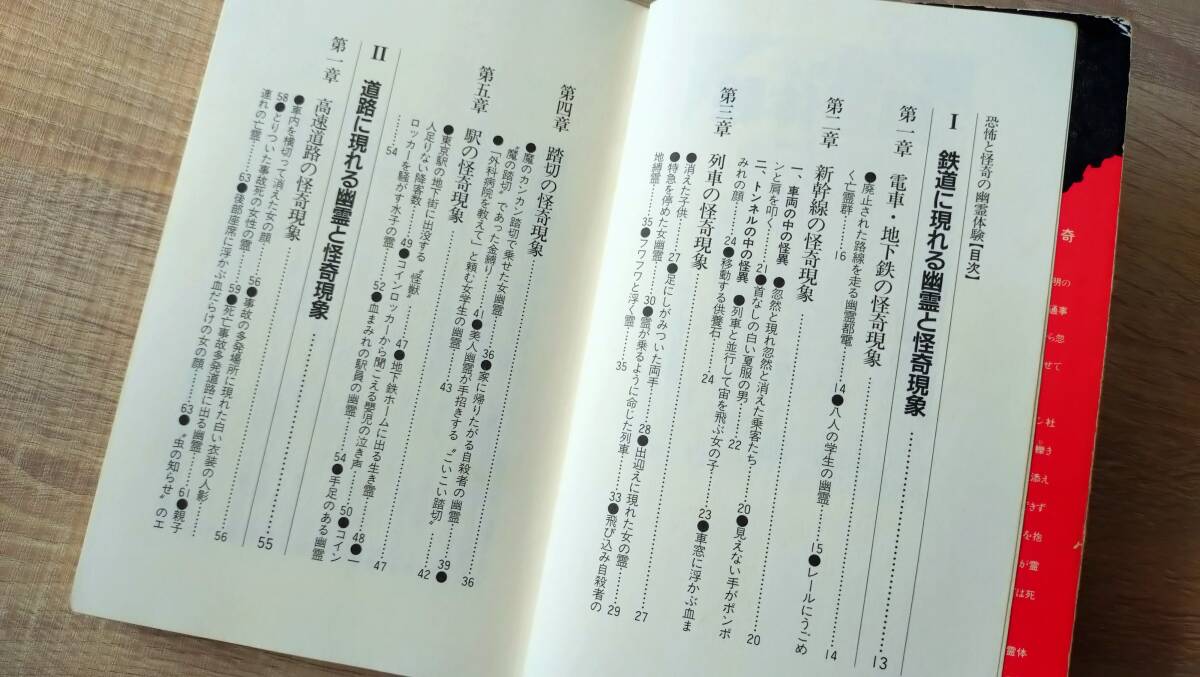 恐怖と怪奇の幽霊体験【目次】
I 鉄道に現れる幽霊と怪奇現象……13
第一章 電車・地下鉄の怪奇現象……14
●廃止された路線を走る幽霊都電……14●八人の学生の幽霊……15●レールにうごめ
く亡霊群……16
第二章 新幹線の怪奇現象……20
一、車両の中の怪異 ●忽然と現れ忽然と消えた乗客たち……20●見えない手がポンポ
ンと肩を叩く……21●首なしの白い夏服の男……22
二、トンネルの中の怪異 ●列車と並行して宙を飛ぶ女の子……23●車窓に浮かぶ血ま
みれの顔……24●移動する供養石……24
第三章 列車の怪奇現象……27
●消えた子供……27●足にしがみついた両手……28●出迎えに現れた女の霊……29
●特急を停めた女幽霊……30●霊が乗るように命じた列車……33●飛び込み自殺者の
地縛霊……35●フワフワと浮く霊……35
第四章 踏切の怪奇現象……36
●魔のカンカン踏切で乗せた女幽霊……36●家に帰りたがる自殺者の幽霊……39●
〝魔の踏切〟であった金縛り……41●美人幽霊が手招きする〝こいこい踏切〟……42
●「外科病院を教えて」と頼む女学生の幽霊……43
第五章 駅の怪奇現象……47
●東京駅の地下街に出没する〝怪獣〟……47●地下鉄ホームに出る生き霊……48●一
人足りない降客数……49●コインロッカーから聞こえる嬰児の泣き声……50●コイン
ロッカーを騒がす水子の霊……52●血まみれの駅員の幽霊……54●手足のある幽霊
……54
II 道路に現れる幽霊と怪奇現象……55
第一章 高速道路の怪奇現象……56
●車内を横切って消えた女の顔……56●事故の多発場所に現れた白い衣装の人影……
58●とりついた事故死の女性の霊……59●死亡事故多発道路に出る幽霊……61●親子
連れの亡霊……63●後部座席に浮かぶ血だらけの女の顔……63●〝虫の知らせ〟のエ
奇
明の
通事
ら怨
せて
ン社
轢き
添え
きず
を抱
が霊
は死
霊体